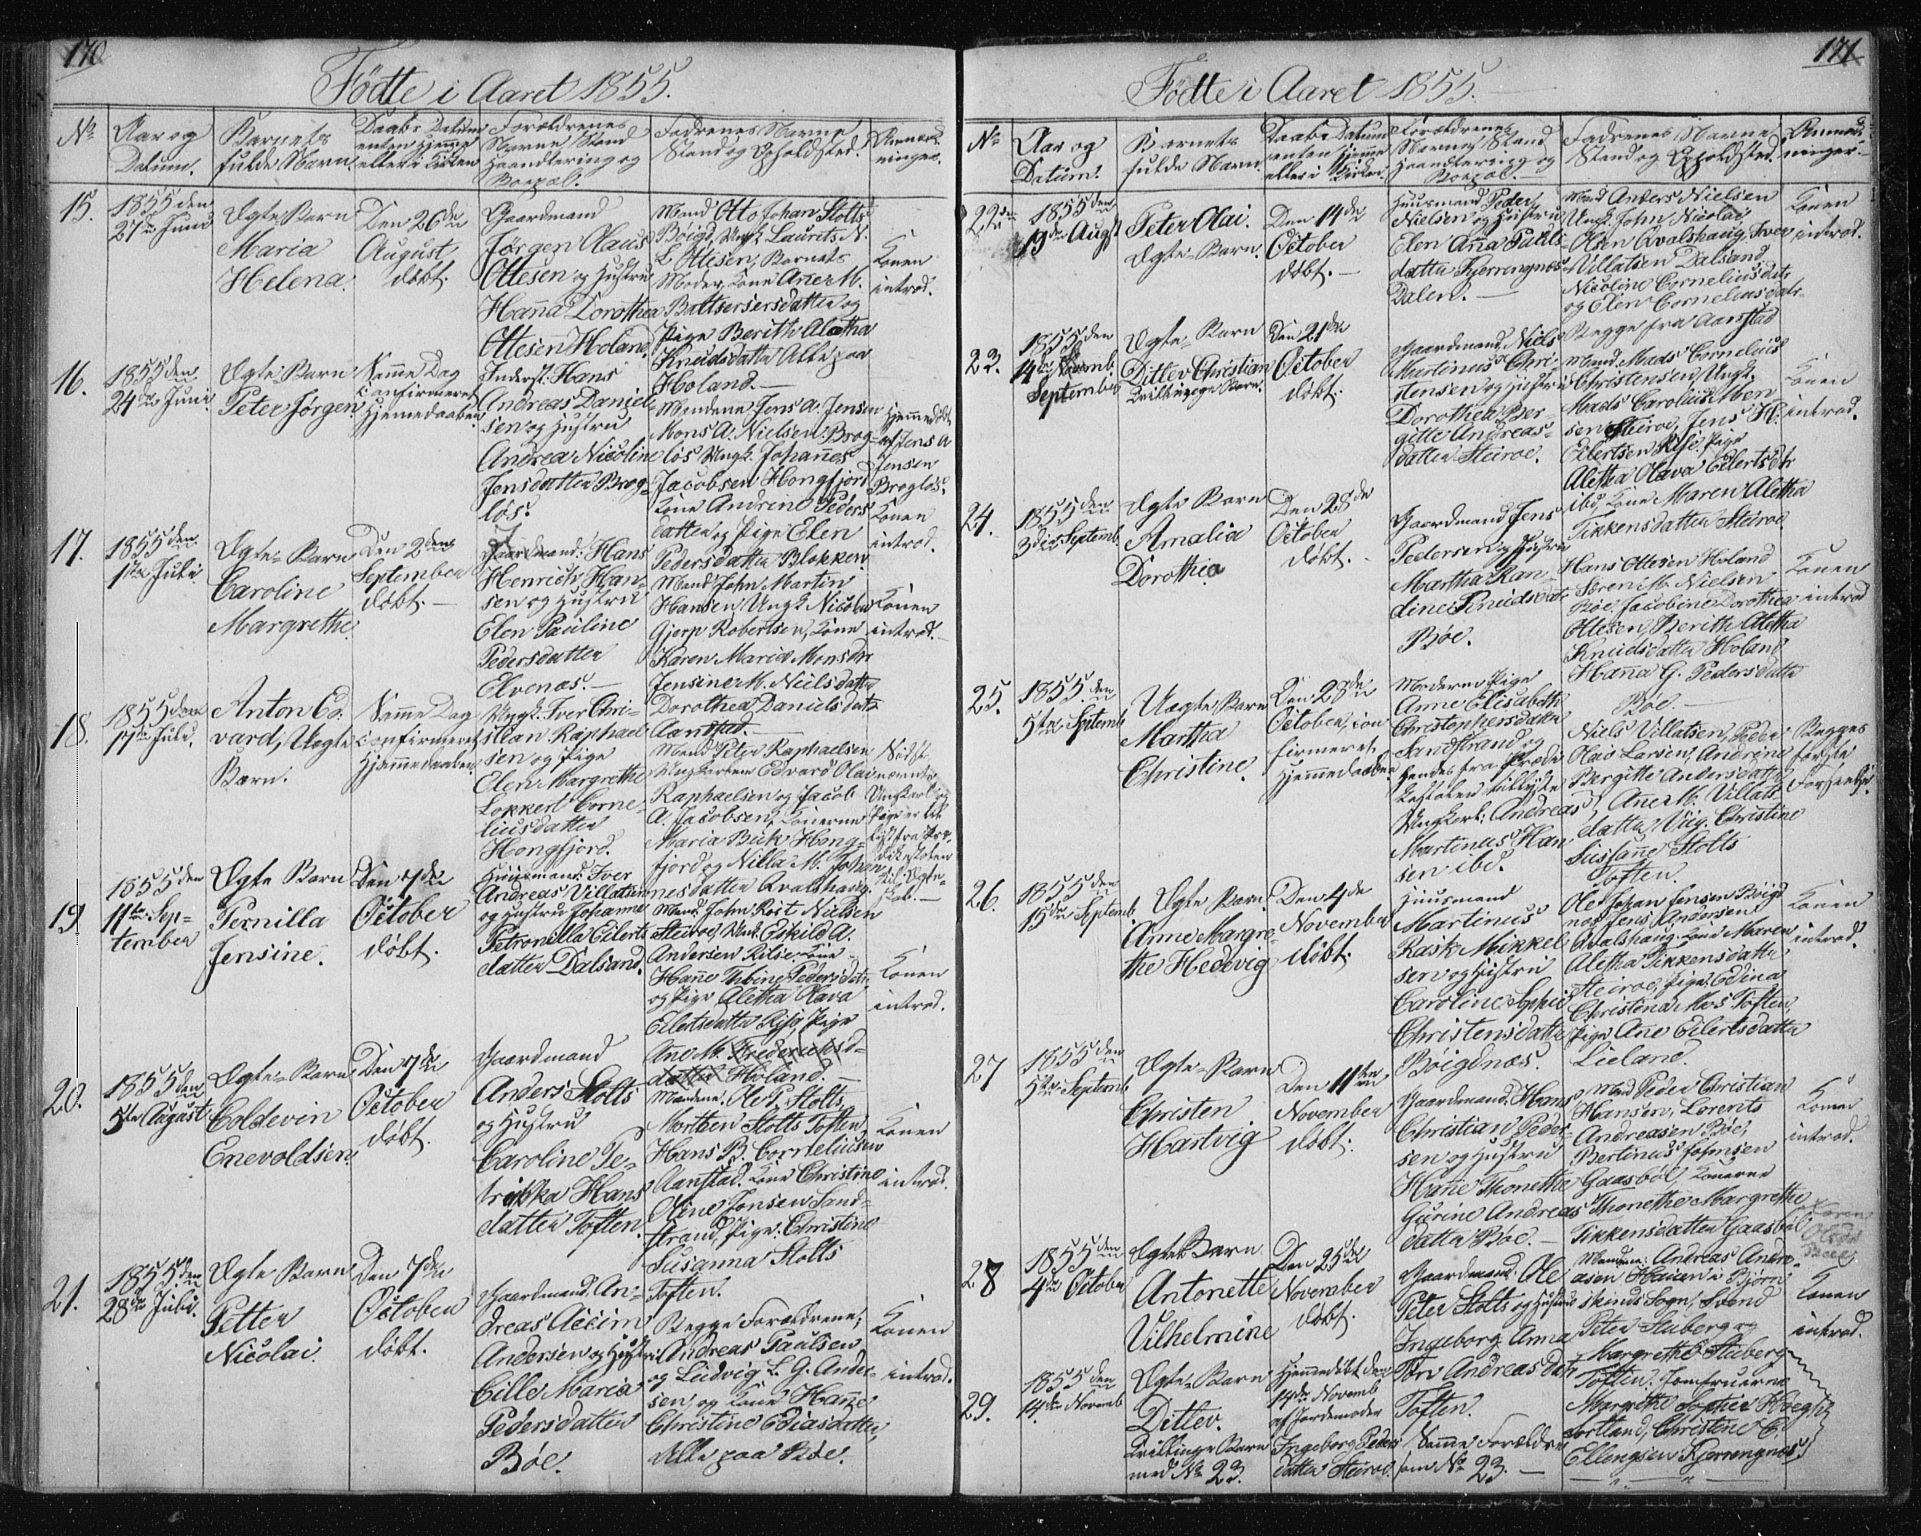 170
Födte i Aaret 1855.
No
Aar og
Datum.
Barnets
fulde Navn.
Daabs Datum
enten hjemme
eller i Kirken
Forældrenes
Navne, Stand
Haandtering og
Bopæl.
Fadrenes Navne
Stand og Opholdsted.
Anmærk-
ninger.
15.
1855 den
27de Juni
Ægte Barn
Maria
Helena.
Den 26de
August
døbt.
Gaardmand
Jørgen Olaus
Ottesen og Hustru
Hanna Dorothea
Ottesen Holand.
Mand Otto Johan Stolts
Böigd, Ungk. Laurits N.
L Ottesen, Barnets
Moder, Kone Ane M.
Baltsersersdatter og
Pige Berith Aletha
Knudsdatter Alle paa
Holand.
Konen
introd.
16.
1855 den
24de Juni
Ægte Barn
Peter Jørgen
Samme Dag
Confirmeret
Hjemmedaaben.
Inderst. Hans
Andreas Daniel-
sen og Hustru
Andrea Nicoline
Jensdatter Brog-
løs.
Mændene Jens A. Jensen
Mons A. Nielsen Brog-
løs Ungk. Johannes
Jacobsen Hongfjord
Kone Andrine Peders
datter og Pige Elen
Pedersdatter Blokken
Hjemmedøbt
af Jens A
Jensen
Brogløs.
Konen
introd.
17.
1855 den
1ste Juli
Ægte Barn
Caroline
Margrethe.
Den 2den
September
døbt.
Gaardmand: Hans
Henrich Han-
sen og Hustru
Elen Pauline
Pedersdatter
Elvenæs.
Mand John Martin
Hansen, Ungk. Nicolai
Gjerp Robertsen, Kone
Karen Maria Monsdtr
Jensine M. Nielsdatter
Dorothea Danielsdatr
Aanstad.
Konen
introd.
18.
1855 den
17de Juli.
Anton Ed-
vard, Uægte
Barn.
Samme Dag
Confirmeret
Hjemmedaaben.
Ungk. Iver Chri-
stian Raphael
sen og Pige
Elen Margrethe
Lokkert Corne-
liusdatter
Hongfjord.
Mand Peter Raphaelsen
Ungkarlene Edvard Olai
Raphaelsen og Jacob
A. Jacobsen, Konerne
Maria Buk Hong-
fjord og Nilla M. Johan
nesdatter Qvalshaug.
19.
1855 den
11te Sep-
tember
Ægte Barn
Pernilla
Jensine.
Den 7de
October
døbt.
Huusmand: Iver
Andreas Villatsen
og Hustru Johanna
Petronilla Eilerts
datter Dalsand.
Mand John Rost Nielsen
Steiroe, Ungk. Eskild A.
Andersen Rilse, Kone
Hane Thrine Pedersdatr
og Pige Aletha Olava
Eilertsdatter Rise, Pige
Ane M. Frederiksd-
datter Holand.
Konen
introd.
20.
1855 den
5te August
Ægte Barn
Coldevin
Enevoldsen
Den 7de
October
døbt.
Gaardmand
Anders Stolts
og Hustru
Caroline Pe-
trikka Hans
datter Toften.
Mændene. Ole P. Stolts,
Morten Stolts Toften
Hans B. Corneliusen
Aanstad. Kone Christine
Oline Jensen Sand-
strand, Pige. Christine
Susanna Stolts
Toften.
Konen
introd.
21.
1855 den
28de Juli.
Ægte Barn
Petter
Nicolai.
Den 7de
October
døbt.
Gaardmand. An-
dreas Accim
Andersen og Hustru
Cille Maria
Pedersdatter
Bøe.
Begge Forældrene,
Andreas Paulsen
og Ludvig L. G. Ander-
sen, og Kone Hanne
Christine Ediasdatter,
Alle paa Bøe.
Konen
introd.
171
Fødte i Aaret 1855.
No
Aar og
Datum.
Barnets
fulde Navn.
Daabs Datum
enten hjemme
eller i Kirken.
Forældrenes
Navne, Stand
Haandtering og
Bopæl.
Fadrenes Navne
Stand og Opholdsted.
Anmærk-
ninger.
22de
1855 den
19de Augst
Peter Olai.
Ægte Barn.
Den 14de
October
døbt.
Huusmand Peder
Nielsen og Hustru
Elen Anna Pauls-
datter Kjerringnæs
Dalen.
Mand Anders Nielsen
Ungk. John Nicolai
Olsen Qvalshaug, Iver
Villatsen Dalsand
Nicoline Corneliusdatr
og Elen Corneliusdatr
Begge fra Aanstad
Konen
introd.
23.
1855 den
14de Novemb.
September
Ægte Barn
Ditlev Christian
Trillinger Barn.
Den 21de
October
døbt.
Gaardmand Niels
Martinus Chri-
stensen og Hustru
Dorothea Ber-
gitte Andreas-
datter Steiroe.
Mand Mads Cornelius
Christensen, Ungk.
Mads Carolius Chri-
sen Steiroe, Jens H.
Eilertsen Rise, Pige
Aletha Olava Eilertsdtr
ibd. Kone Maren Aletha
Tikkensdatter Steiroe
Konen
introd.
24.
1855 den
3die Septemb.
Ægte Barn
Amalia
Dorothea
Den 28de
October
døbt.
Gaardmand Jens
Pedersen og Hustru
Martha Ran-
dine Knudsdatr
Bøe.
Hans Ottesen Holand
Søren M. Nielsen
Bøe, Jacobine Dorothea
Ottesen, Berith Aletha
Knudsdatter Holand
Hanna G. Pedersdatter
Bøe.
Konen
introd
25.
1855 den
5te Septemb.
Uægte Barn
Martha
Christine.
Den 28de
October, con-
firmeret
Hjemmedaaben
Moderen Pige
Anne Elisabeth
Christophersdatter
Sandstrand og
Ungkarl: Andreas
Martinus Han
sen ibd.
Niels Villatsen, Peder
Olai Larsen, Andrina
Bergitte Andersdatter
Ane M. Villats
datter, Pige Christine
Susanne Stolts
Toften.
Begges
første
Forseelse.
26.
1855 den
15de Septemb.
Ægte Barn.
Anne Margre-
the Hedevig
Den 4de
November
døbt.
Huusmand
Martinus
Rask Mikkel
sen og Hustru
Caroline Sophie
Christensdatter
Bøigdnæs.
Ole Johan Jensen Böigd
næs Jens Andersen
Qvalshaug. Kone Maren
Aletha Tikkensdatter
Steiroe, Pige Edina
Christina Moes Toften,
Pige Ane Eilertsdatter
Lieland.
Konen
introd.
27
1855 den
5te Septemb
Ægte Barn
Christen
Hartvig
Den 11te
November
døbt.
Gaardmand. Hans
Christian Peder-
sen og Hustru
Hanne Thonetha
Gurine Andreas
datter Bøe.
Mand Peder Christian
Hansen, Lorents
Andreasen Bøe,
Bertinus Johnsen
Gaasbøl, Konerne
Thonethe Margrethe
Tikkensdatter Gaasbøl
Konen
introd.
Karen
Olsdr
Bøe
28
1855 den
4de October
Ægte Barn
Antonette
Vilhelmine
Den 25de
November
døbt.
Gaardmand. Ole
Peter Stolts og Hustru
Ingeborg Anna
Andreasdatr
Toften.
Mændene: Andreas Andre-
asen Hauen i Bjørn-
skinds Sogn, Svend
Peter Stuberg og
Margrethe Stuberg
Toften. Jomfruerne
Margrethe Sophie Hoegh
Sortland, Christene C.
Ellingsen Kjerringnæs
Konen
introd.
29.
1855 den
14de Novemb
Ægte Barn
Ditlev.
Trillinge Barn
med No 23.
Hjemmedøbt den
14de Novemb
af Jordemoder
Ingeborg Peders
datter Steiroe.
Samme Forældre
som No 23.